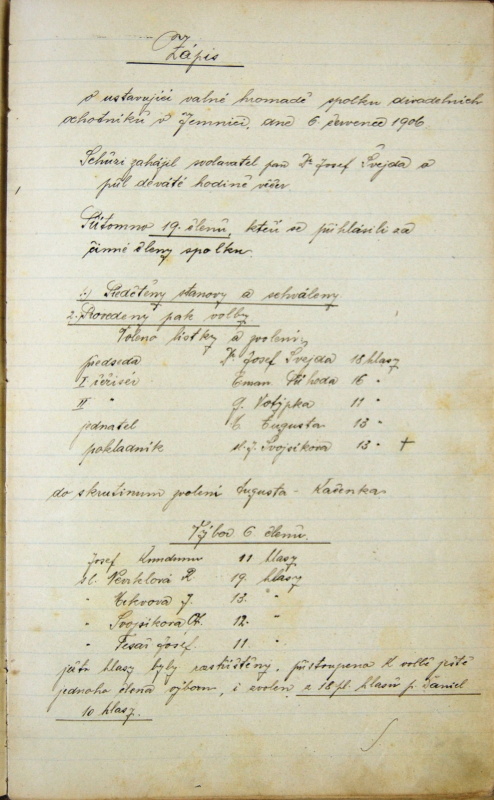 Zápis
o ustavující valné hromadě spolku divadelních
ochotníků v Jemnici, dne 6. července 1906
Schůzi zahájil svolavatel pan Dr Josef Švejda o
půl deváté hodině večer.
Přítomno 19. členů, kteří se přihlásili za
činné členy spolku.
1.) Předčteny stanovy a schváleny.
2. Provedeny pak volby
Voleno lístky a zvoleni,
předseda Dr. Josef Švejda 18 hlasy
I režisér Eman. Příhoda 16 "
II " G. Votýpka 11 "
jednatel Č. Augusta 13 "
pokladník sl. J. Svojsíkova 13 " +
do skrutinum zvoleni Augusta - Kačenka
Výbor 6 členů.
Josef 11 hlasy
sl. 19. hlasy
" J. 13. "
" Svojsíkova 12. "
" Tesař Josef. 11. "
hlasy byly roztříštěny, přistoupeno k volbě ještě
jednoho člena výboru, i zvolen z 18 pl. hlasů p. Daniel
10 hlasy.